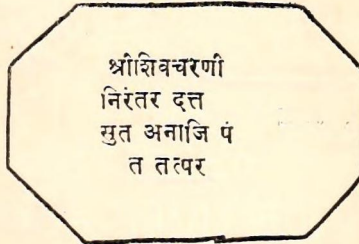 श्रीशिवचरणी
निरंतर दत्त
सुत अनाजि पं
त तत्पर